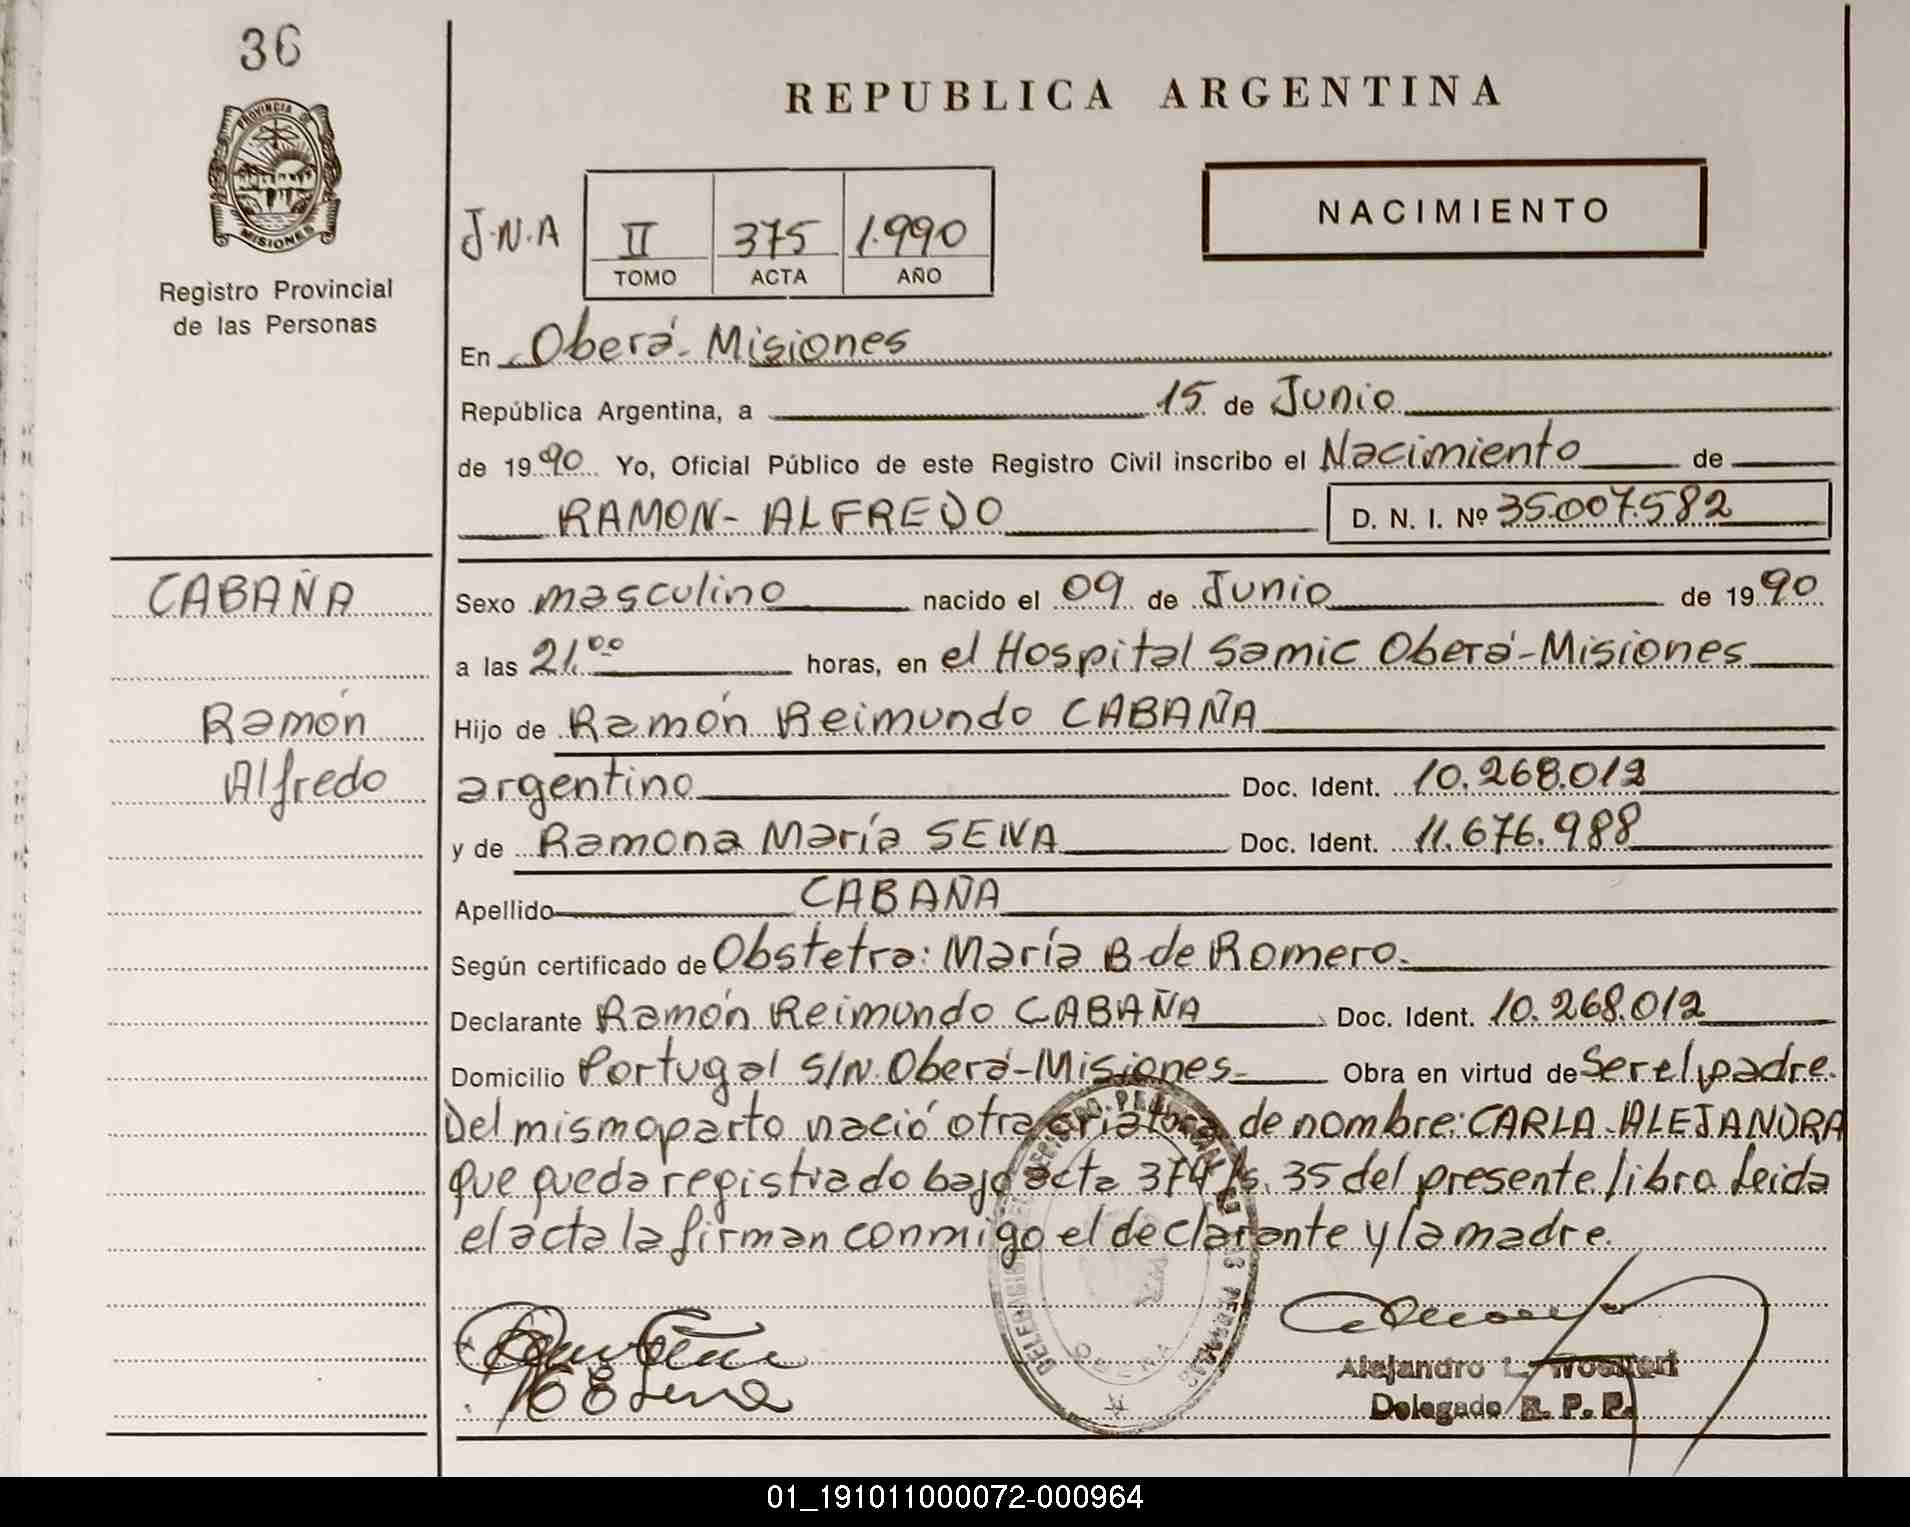 36
REPUBLICA ARGENTINA
PROVINCIA DE
MISIONES
NACIMIENTO
J.N.A II 375 1.990
TOMO ACTA AÑO
Registro Provincial
de las Personas
En Oberá - Misiones
República Argentina, a 15 de Junio
de 1990 Yo, Oficial Público de este Registro Civil inscribo el Nacimiento de
RAMON - ALFREDO D. N. I. Nº 35.007.582
CABAÑA
Sexo masculino nacido el 09 de Junio de 1990
a las 21.00 horas, en el Hospital Samic Oberá-Misiones
Ramón
Hijo de Ramón Reimundo CABAÑA
Alfredo
argentino Doc. Ident. 10.268.012
y de Ramona María SENA Doc. Ident. 11.676.988
Apellido CABAÑA
Según certificado de Obstetra: María B de Romero.
Declarante Ramón Reimundo CABAÑA Doc. Ident. 10.268.012
Domicilio Portugal S/N. Oberá-Misiones Obra en virtud de Ser el padre.
Del mismo parto nació otra criatura de nombre: CARLA-ALEJANDRA
que queda registrado bajo acta 374 fs. 35 del presente libro Leida
el acta la firman conmigo el declarante y la madre.
Alejandro L.
Delegado R. P. P.
01_191011000072-000964